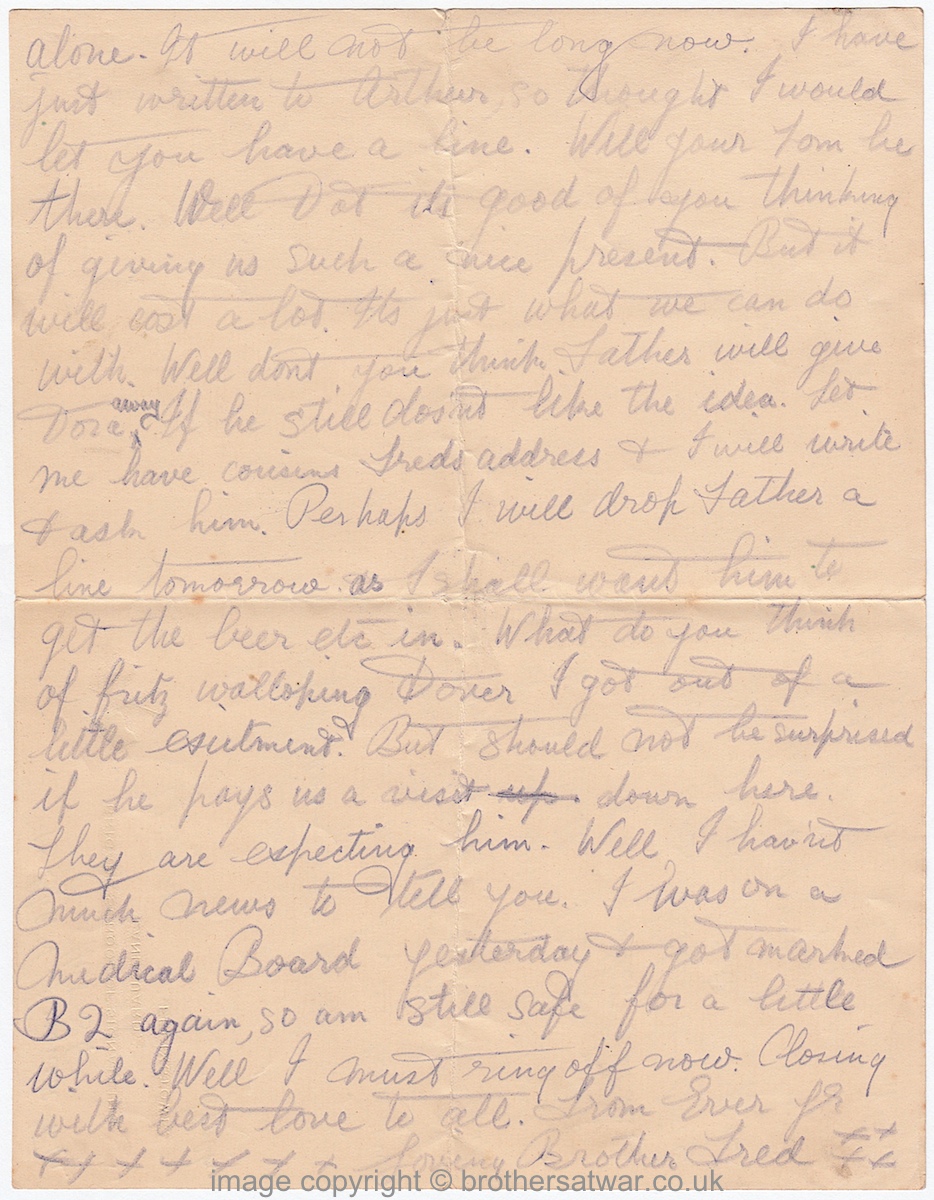 alone. It will not be long now. I have
just written to Arthur, so thought I would
let you have a line. Will your Tom be
there. Well Dot its good of you thinking
of giving us such a nice present. But it
will cost a lot. Its just what we can do
with. Well dont you think Father will give
Dora away. If he still dosnt like the idea. Let
me have cousins Freds address & I will write
& ask him. Perhaps I will drop Father a
line tomorrow as I shall want him to
get the beer etc in. What do you think
of fritz walloping Dover I got out of a
little exsitment. But should not be surprised
if he pays us a visit up. down here.
They are expecting him. Well I hav'nt
much news to tell you. I was on a
Medical Board yesterday & got marked
B2 again, so am still safe for a little
while. Well I must ring off now. Closing
with best love to all. From Ever Yr
x x x x x x x Loving Brother Fred x x x x
image copyright © brothersatwar.co.uk